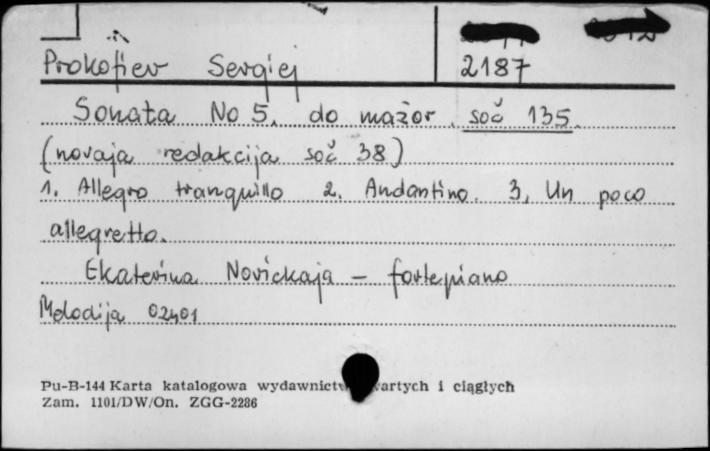 Prokofiev Sergiej
2187
Sonata No 5. do mažor soč 135
(novaja redakcija soč 38)
1. Allegro tranquillo 2. Andantino. 3. Un poco
allegretto.
Ekaterina Novickaja - fortepiano
Melodija 02401
Pu-B-144 Karta katalogowa i ciągłych
Zam. 1101/DW/On. ZGG-2286